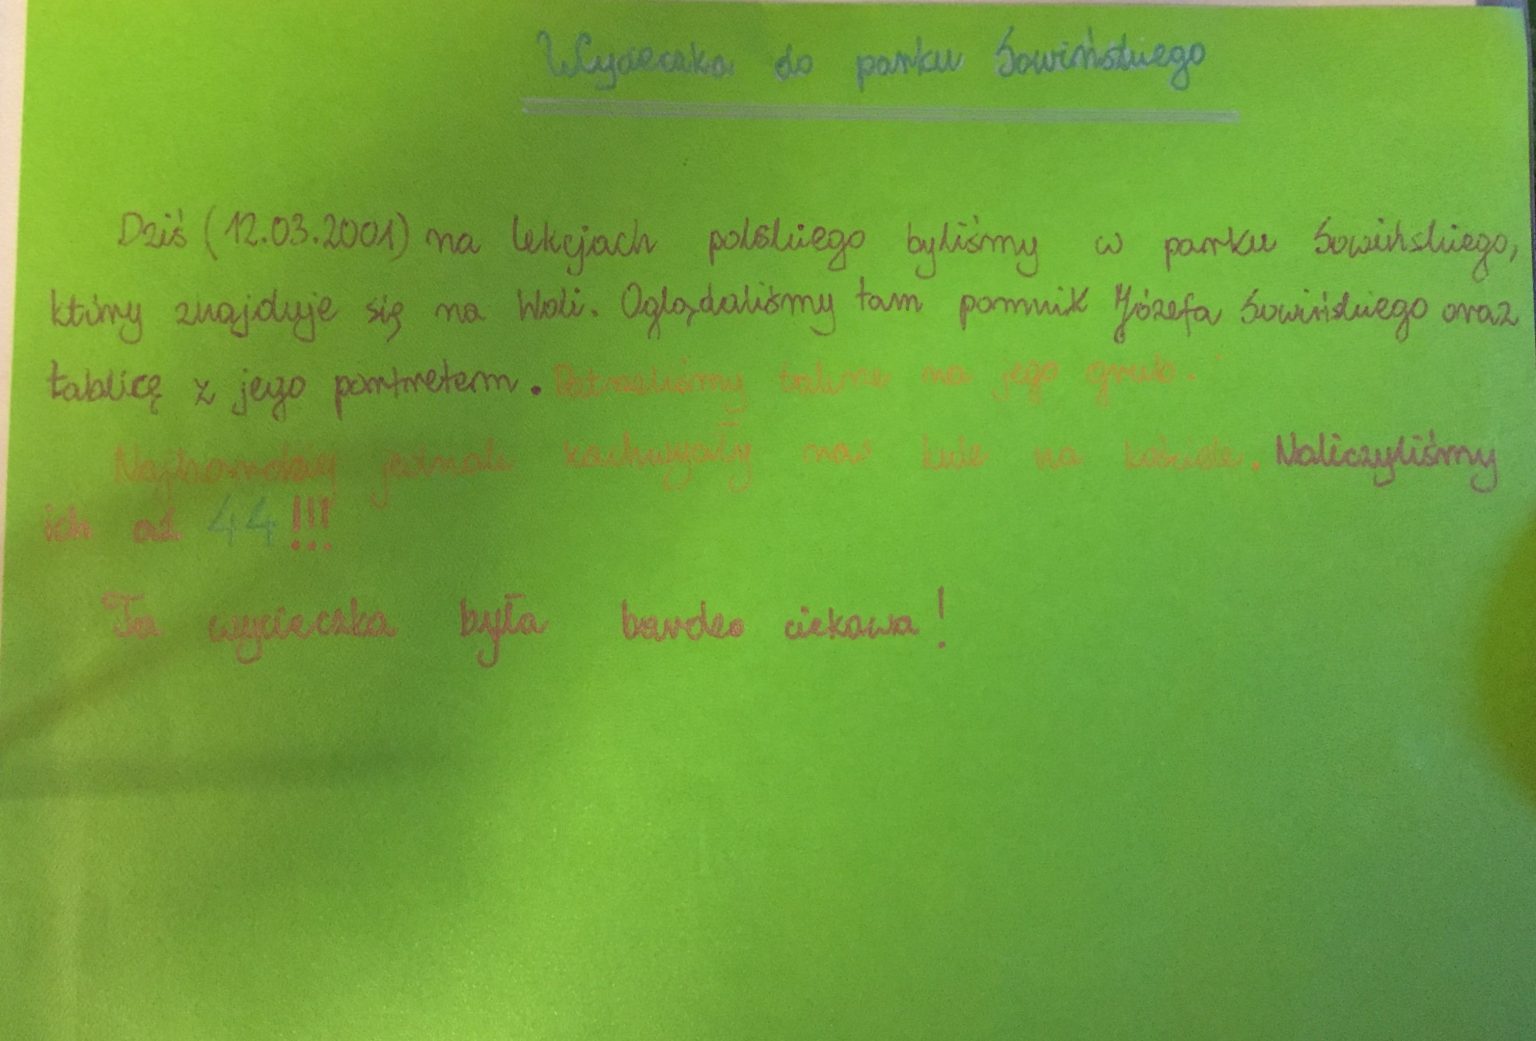 Wycieczka do parku Sowińskiego
Dziś (12.03.2001) na lekcjach polskiego byliśmy w parku Sowińskiego,
który znajduje się na Woli. Oglądaliśmy tam pomnik Józefa Sowińskiego oraz
tablicę z jego portretem. na jego grób.
Najbardziej jednak zachwycały nas kule na kościele. Naliczyliśmy
ich aż 44!!!
Ta wycieczka była bardzo ciekawa!